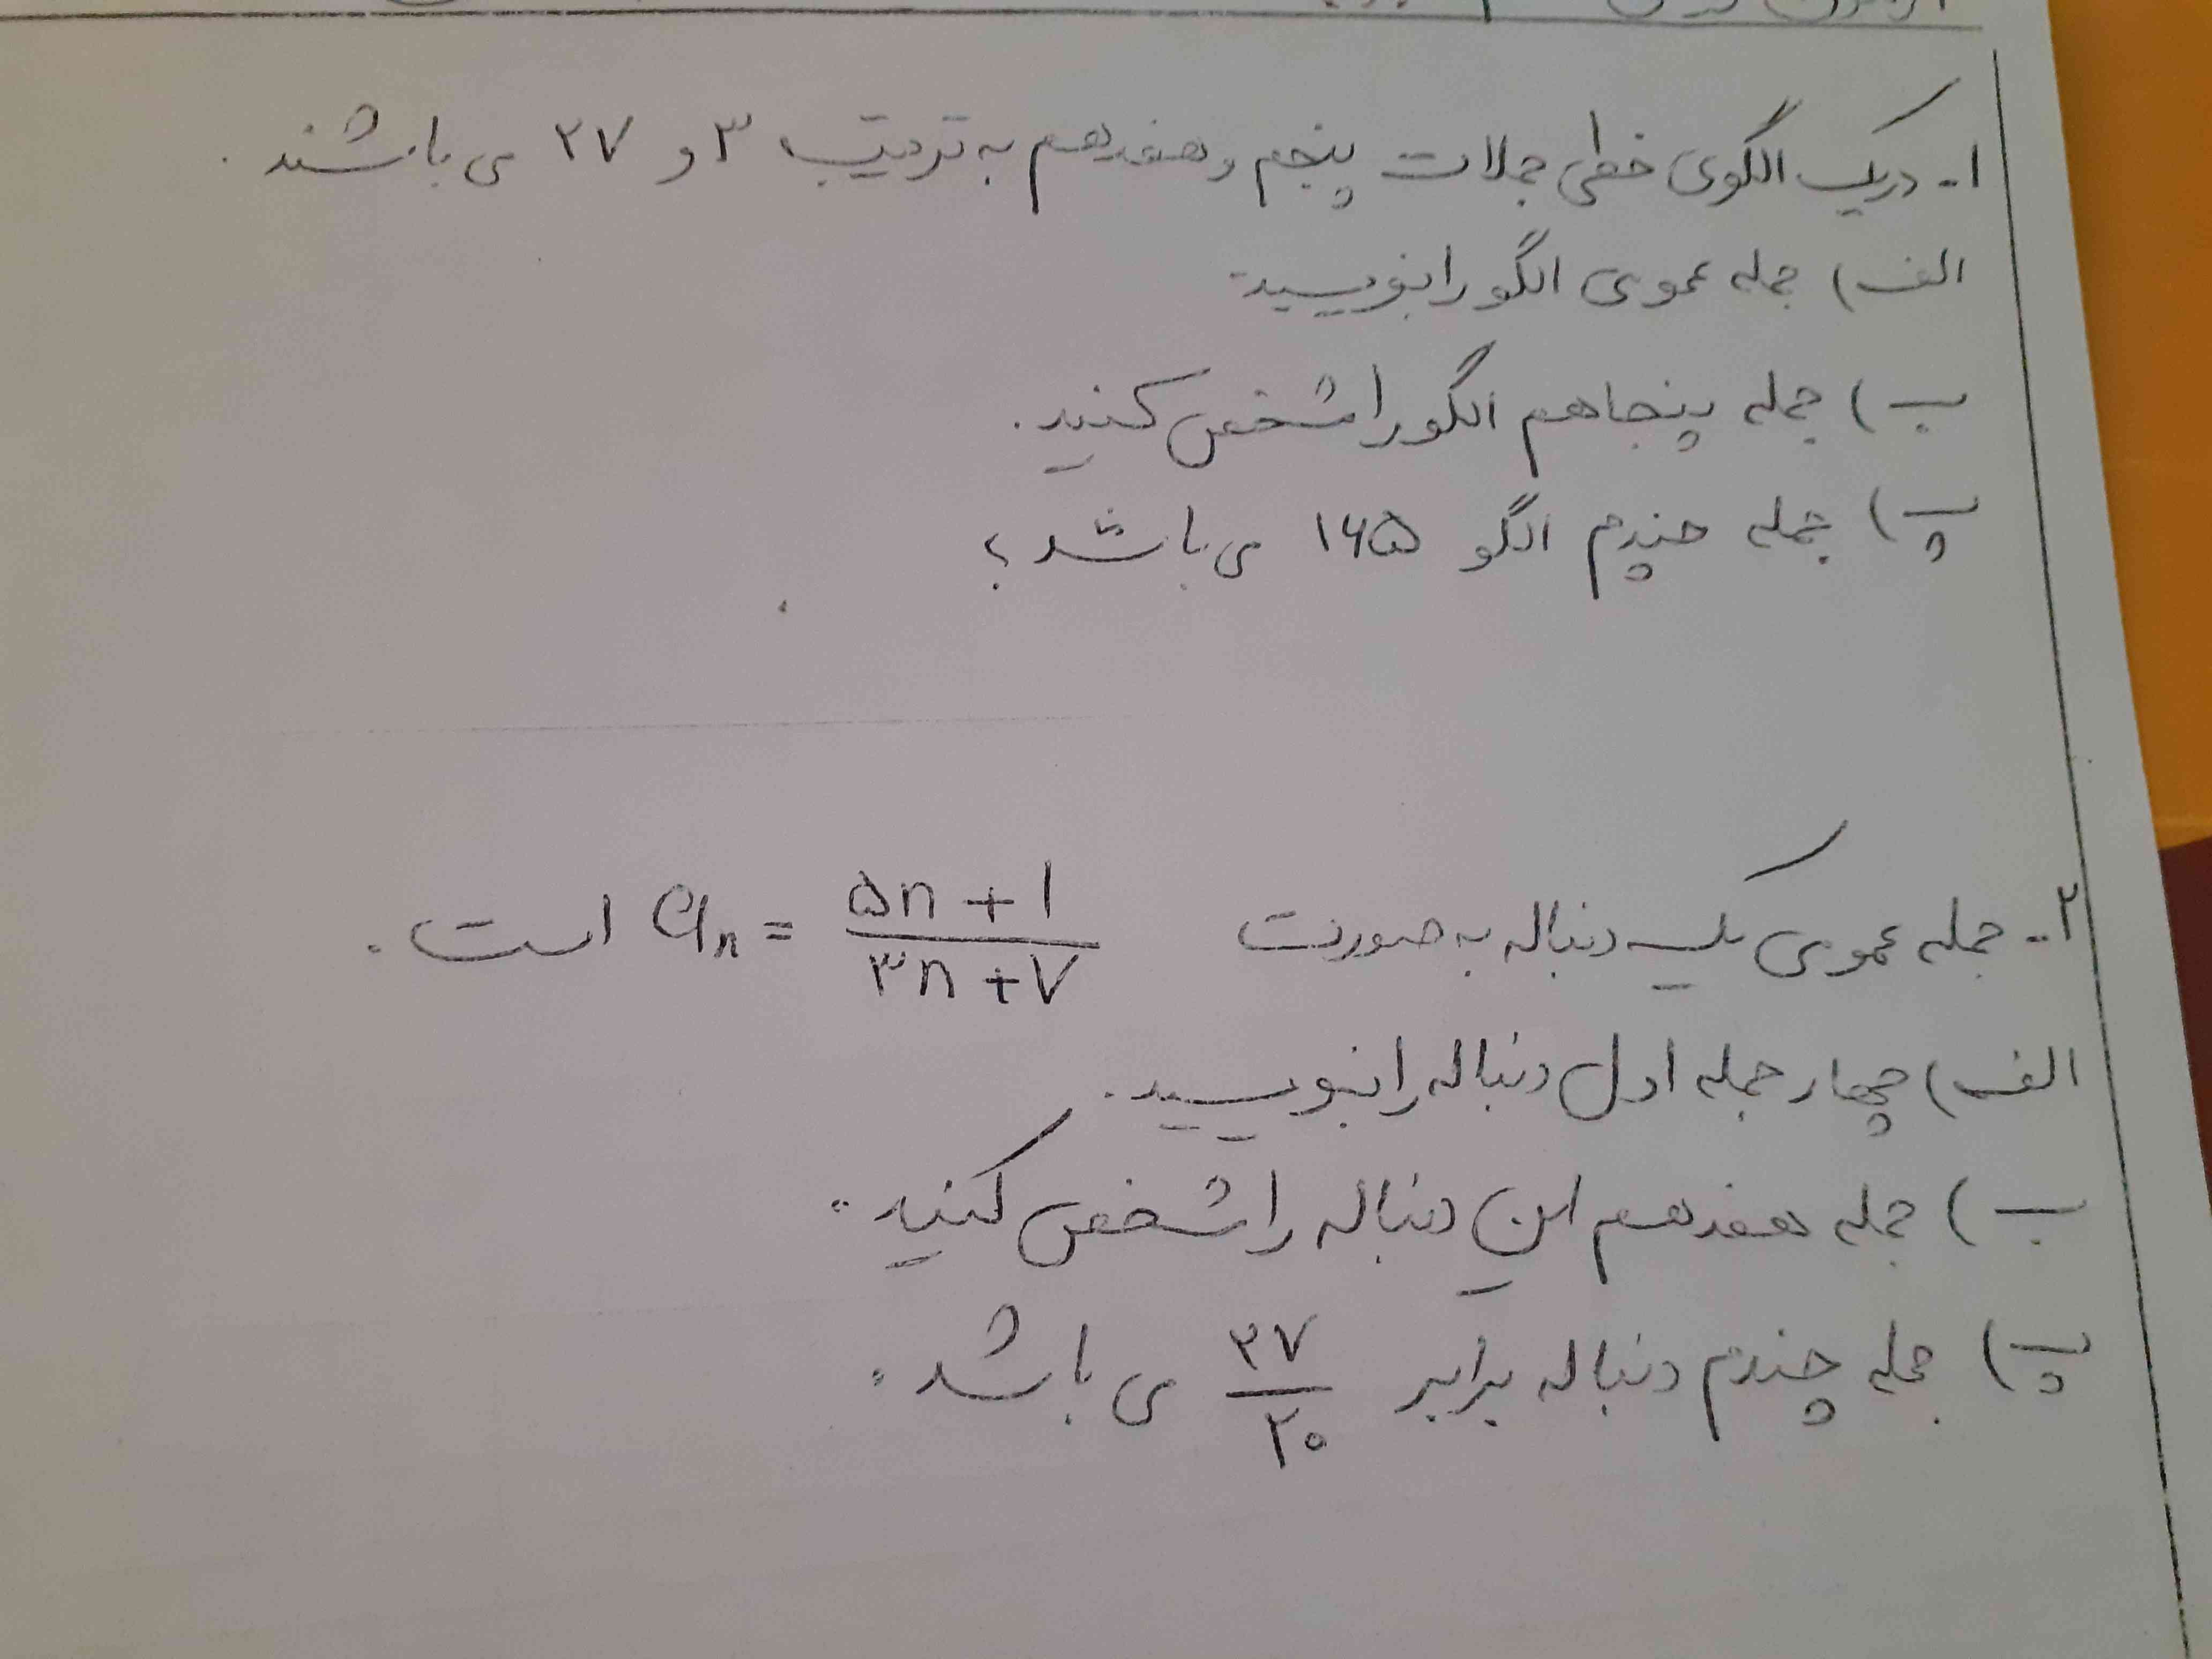 ۱- در یک الگوی خطی جملات پنجم و هفدهم به ترتیب ۳ و ۲۷ می باشند .
الف) جمله عمومی الگو را بنویسید
ب) جمله پنجاهم الگو را مشخص کنید .
پ) جمله چندم الگو ۱۶۵ می باشد ؟
۲- جمله عمومی یک دنباله به صورت aₙ = (۵n + ۱)/(۳n + ۷) است .
الف) چهار جمله اول دنباله را بنویسید .
ب) جمله هفدهم این دنباله را مشخص کنید .
پ) جمله چندم دنباله برابر ۳۷/۲۰ می باشد .